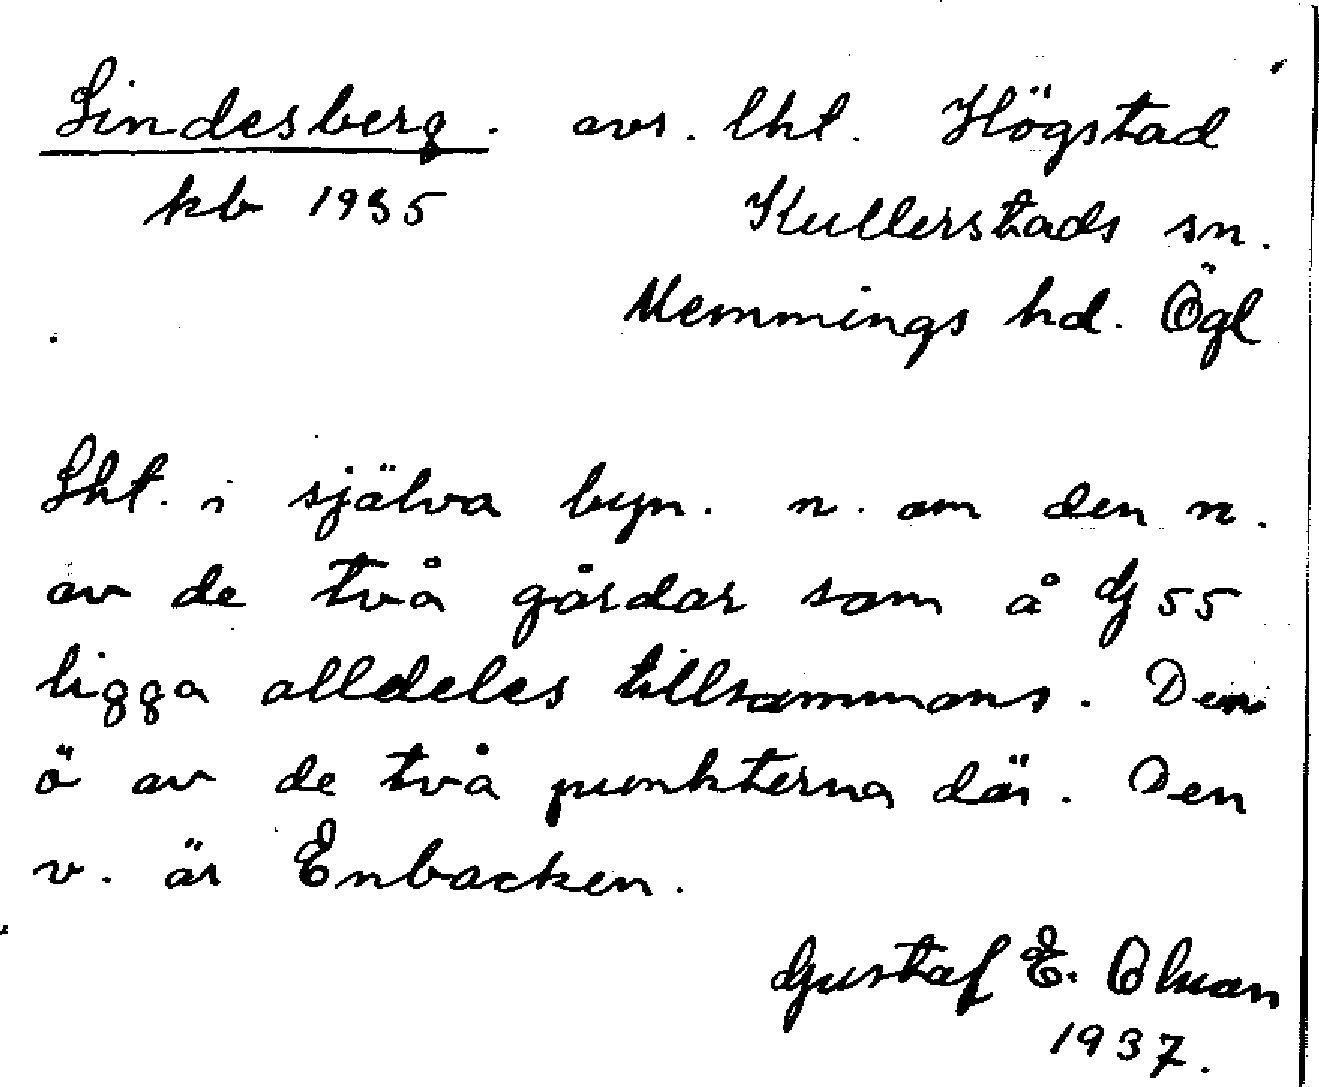 Lindesberg. avs. lht. Högstad
kb 1935 Kullerstads sn.
Memmings hd. Ögl
Lht. i själva byn. n. om den n.
av de två gårdar som å G 55
ligga alldeles tillsammans. Den
ö av de två punkterna där. Den
v. är Enbacken.
Gustaf E.
1937.